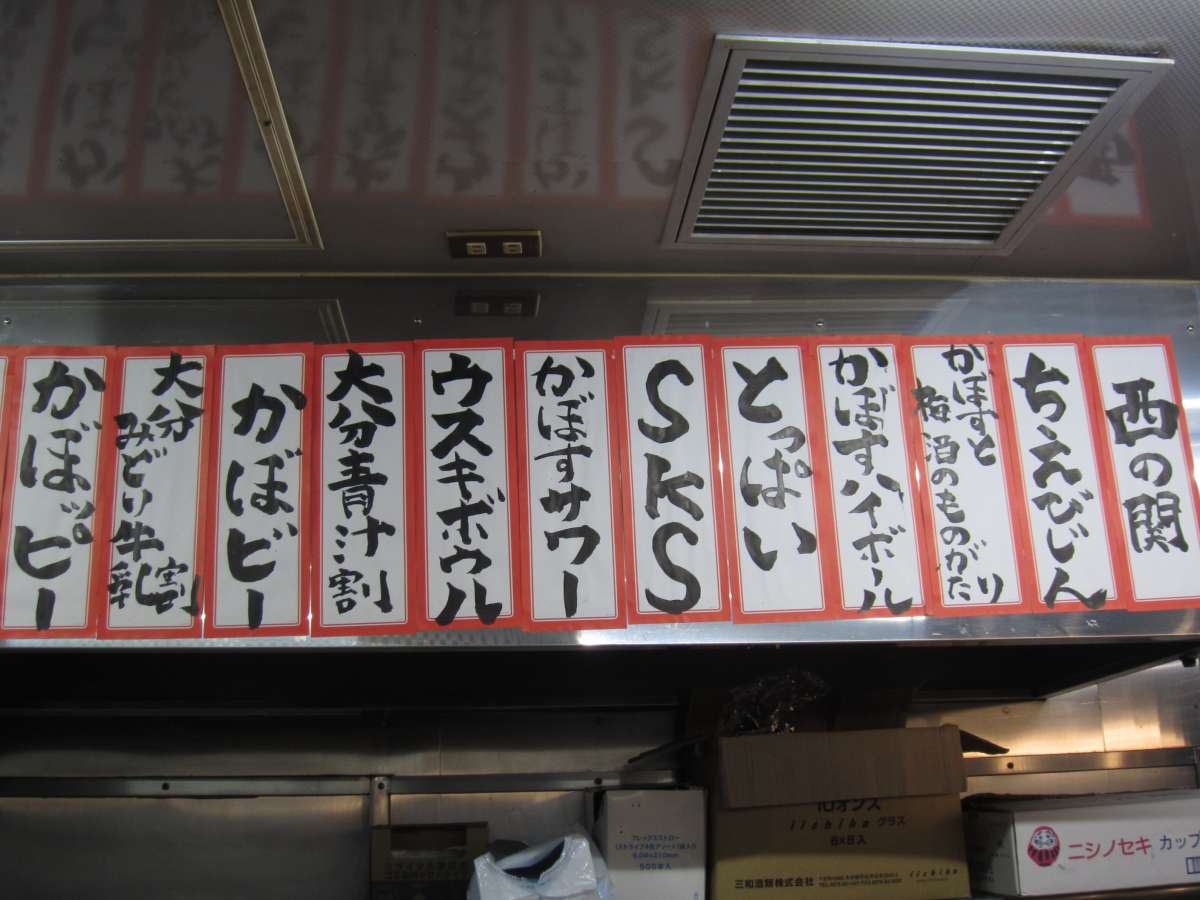 西の関
ちえびじん
かぼすと
梅酒のものがたり
かぼすハイボール
とっぱい
SKS
かぼすサワー
ウスキボウル
大分青汁割
かぼビー
大分
みどり牛乳割
かぼッピー
10オンス
iichiko グラス
6×8入
三和酒類株式会社
iichiko
フレックスストロー
500本入
ニシノセキ カップ